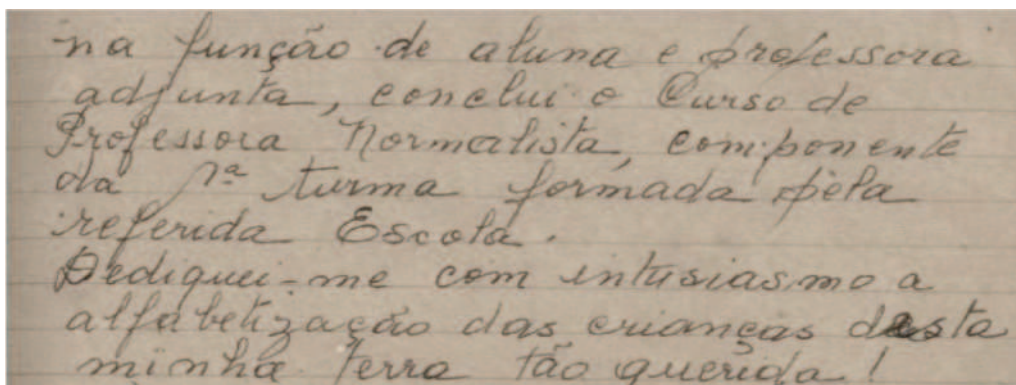 na função de aluna e professora
adjunta, conclui o Curso de
Professora Normalista, componente
da 1ª turma formada pela
referida Escola.
Dediquei-me com intusiasmo a
alfabetização das crianças desta
minha terra tão querida!